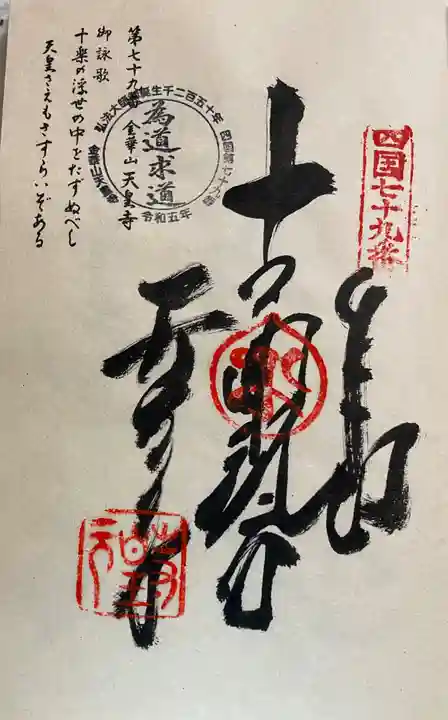 四国七十九番
奉納
十一面観音
天皇寺
弘法大師御誕生千二百五十年 四国第七十九番
為道求道
令和五年
第七十九番 金華山 天皇寺
御詠歌
十楽の浮世の中をたずぬべし
天皇さえもさすらいぞある